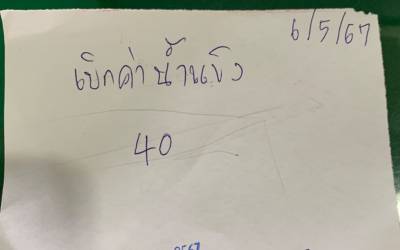 6/5/67
เบิกค่าน้ำแข็ง
40